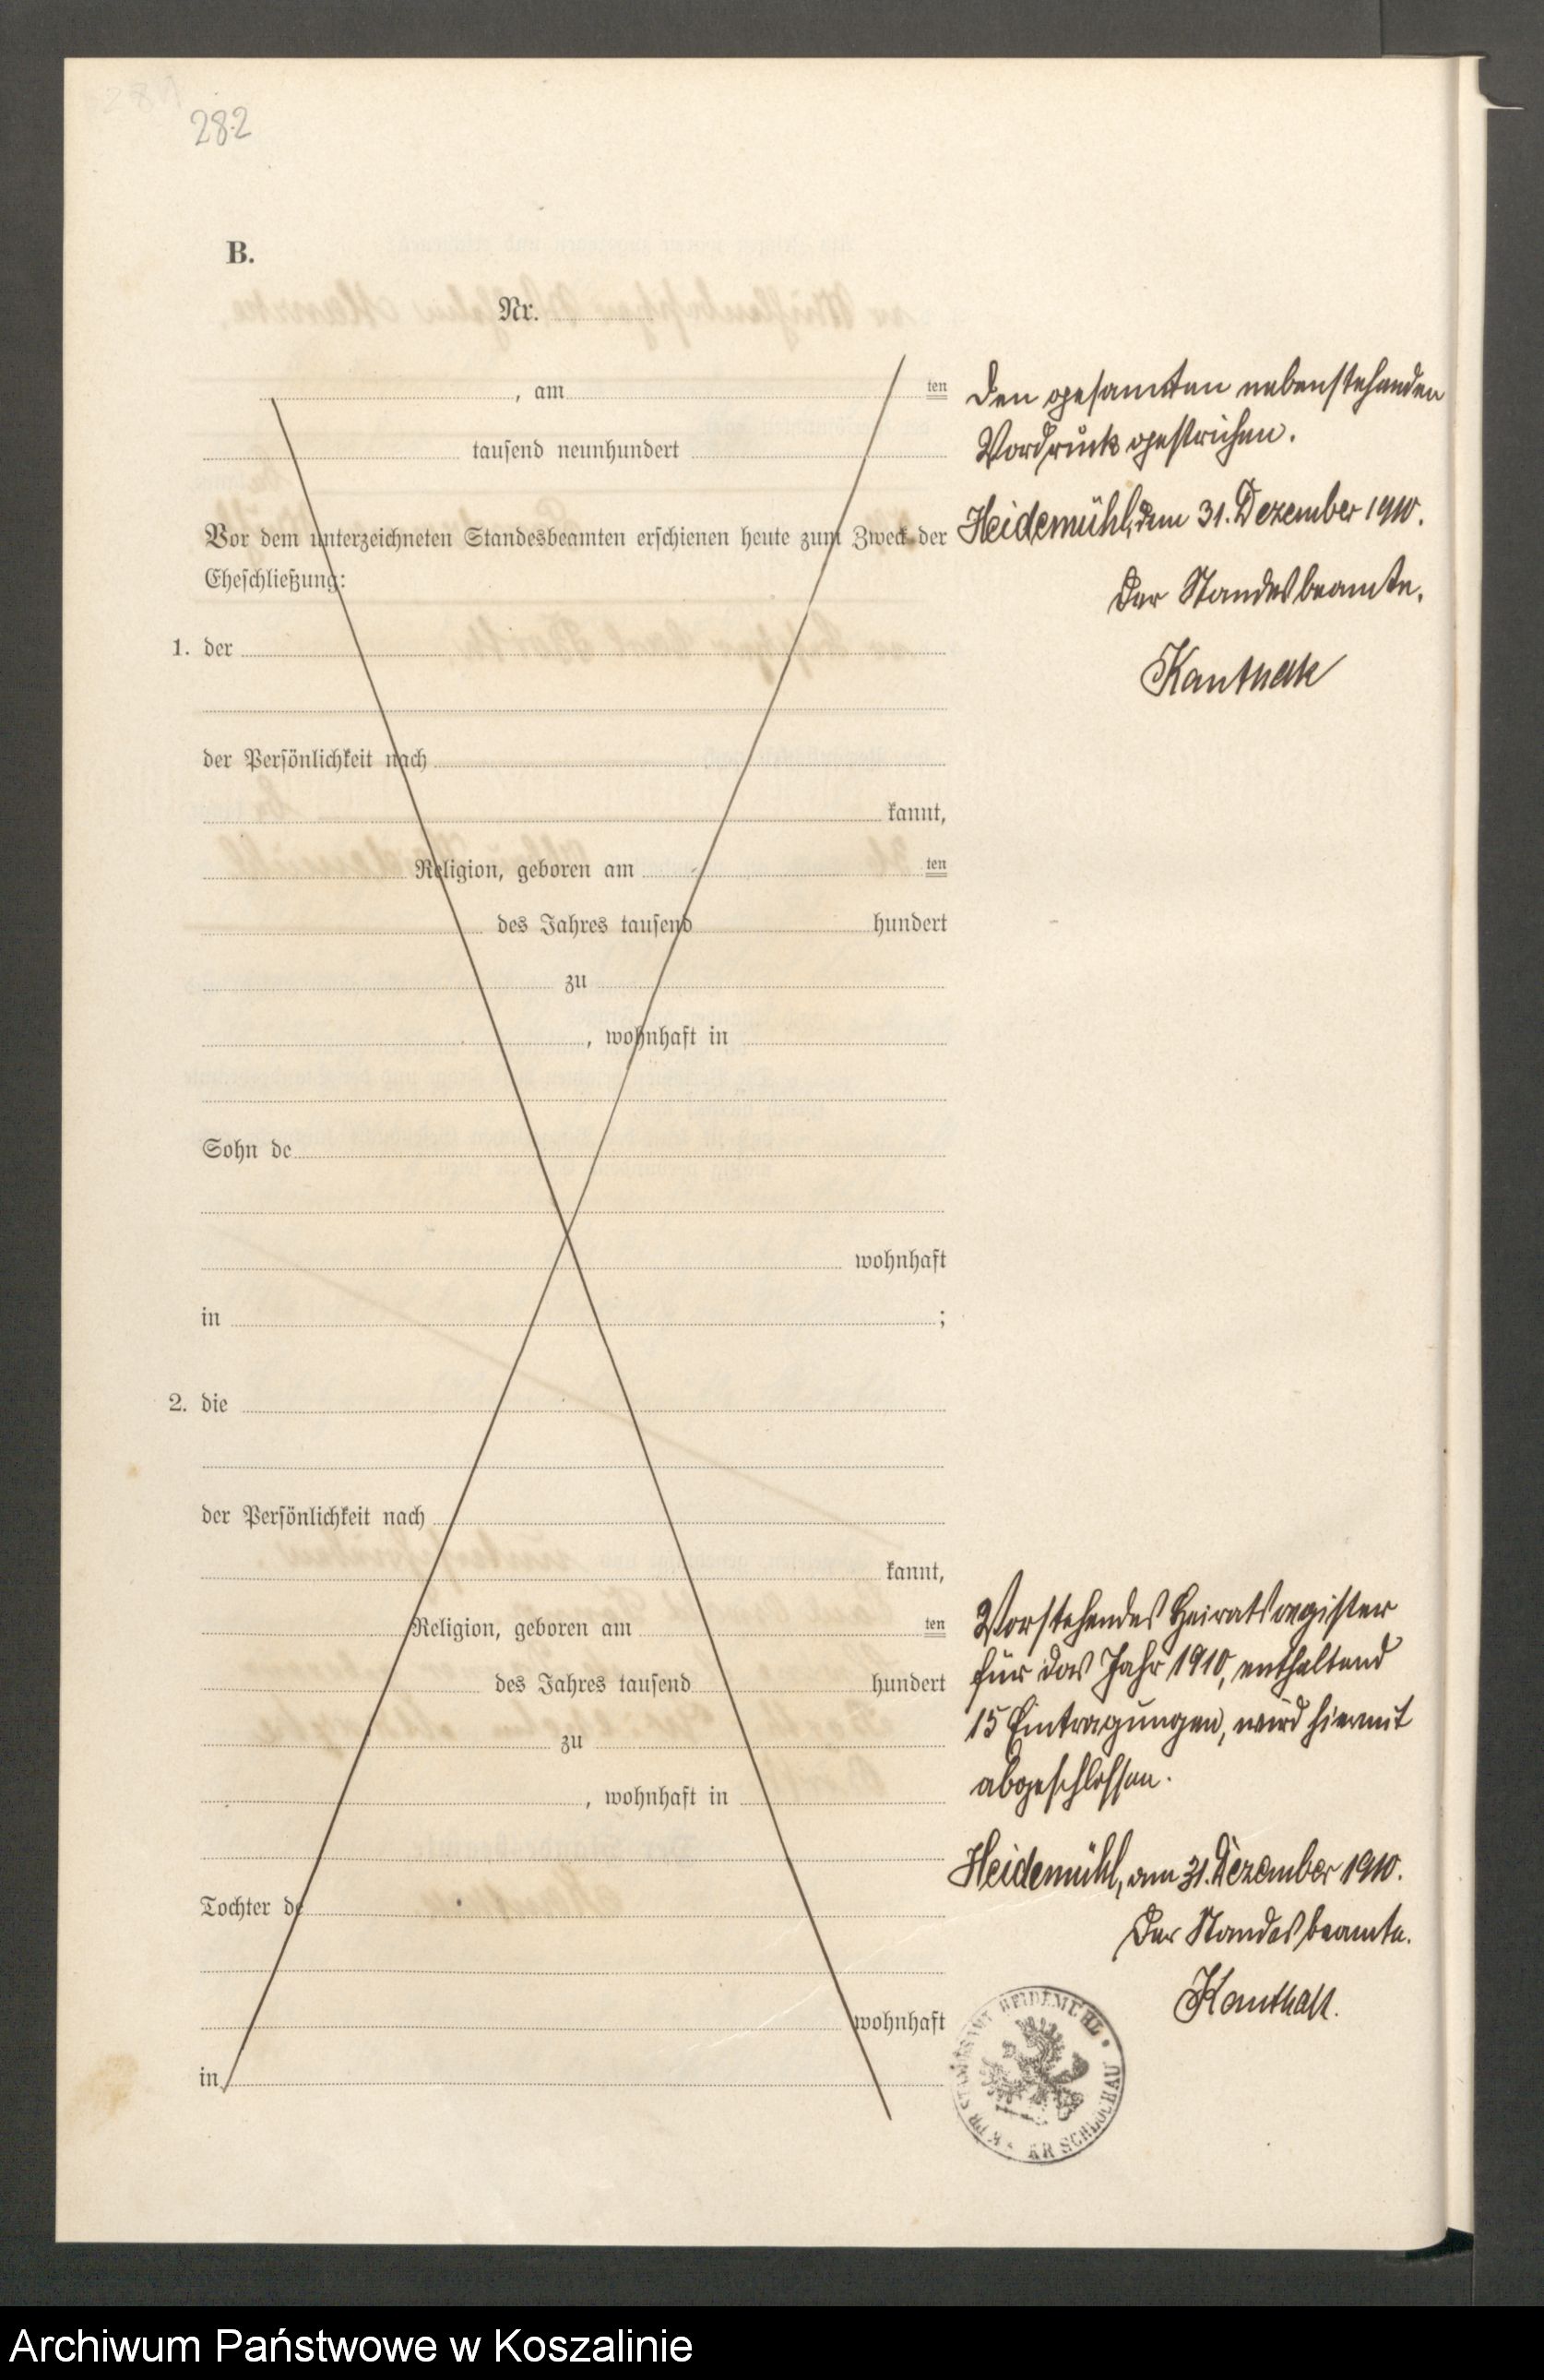 282
B.
Nr.
, am ten
tausend neunhundert
Vor dem unterzeichneten Standesbeamten erschienen heute zum Zweck der
Eheschließung:
1. der
der Persönlichkeit nach
kannt,
Religion, geboren am ten
des Jahres tausend hundert
zu
, wohnhaft in
Sohn de
wohnhaft
in ;
2. die
der Persönlichkeit nach
kannt,
Religion, geboren am ten
des Jahres tausend hundert
zu
, wohnhaft in
Tochter de
wohnhaft
in
Den gesamten nebenstehenden
Vordruck gestrichen.
Heidemühl, den 31. Dezember 1910.
Der Standesbeamte.
Vorstehendes Heiratsregister
für das Jahr 1910, enthaltend
15 Eintragungen, wird hiermit
abgeschlossen.
Heidemühl, am 31. Dezember 1910.
Der Standesbeamte.
K. PR. STANDESAMT HEIDEMÜHL • KR SCHLOCHAU •
Archiwum Państwowe w Koszalinie